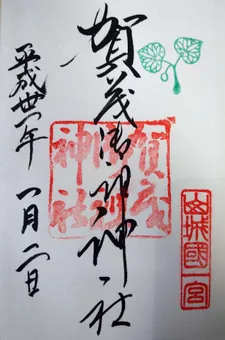 山城國一宮
賀茂御祖神社
賀茂
御祖
神社
平成卅一年 一月二日